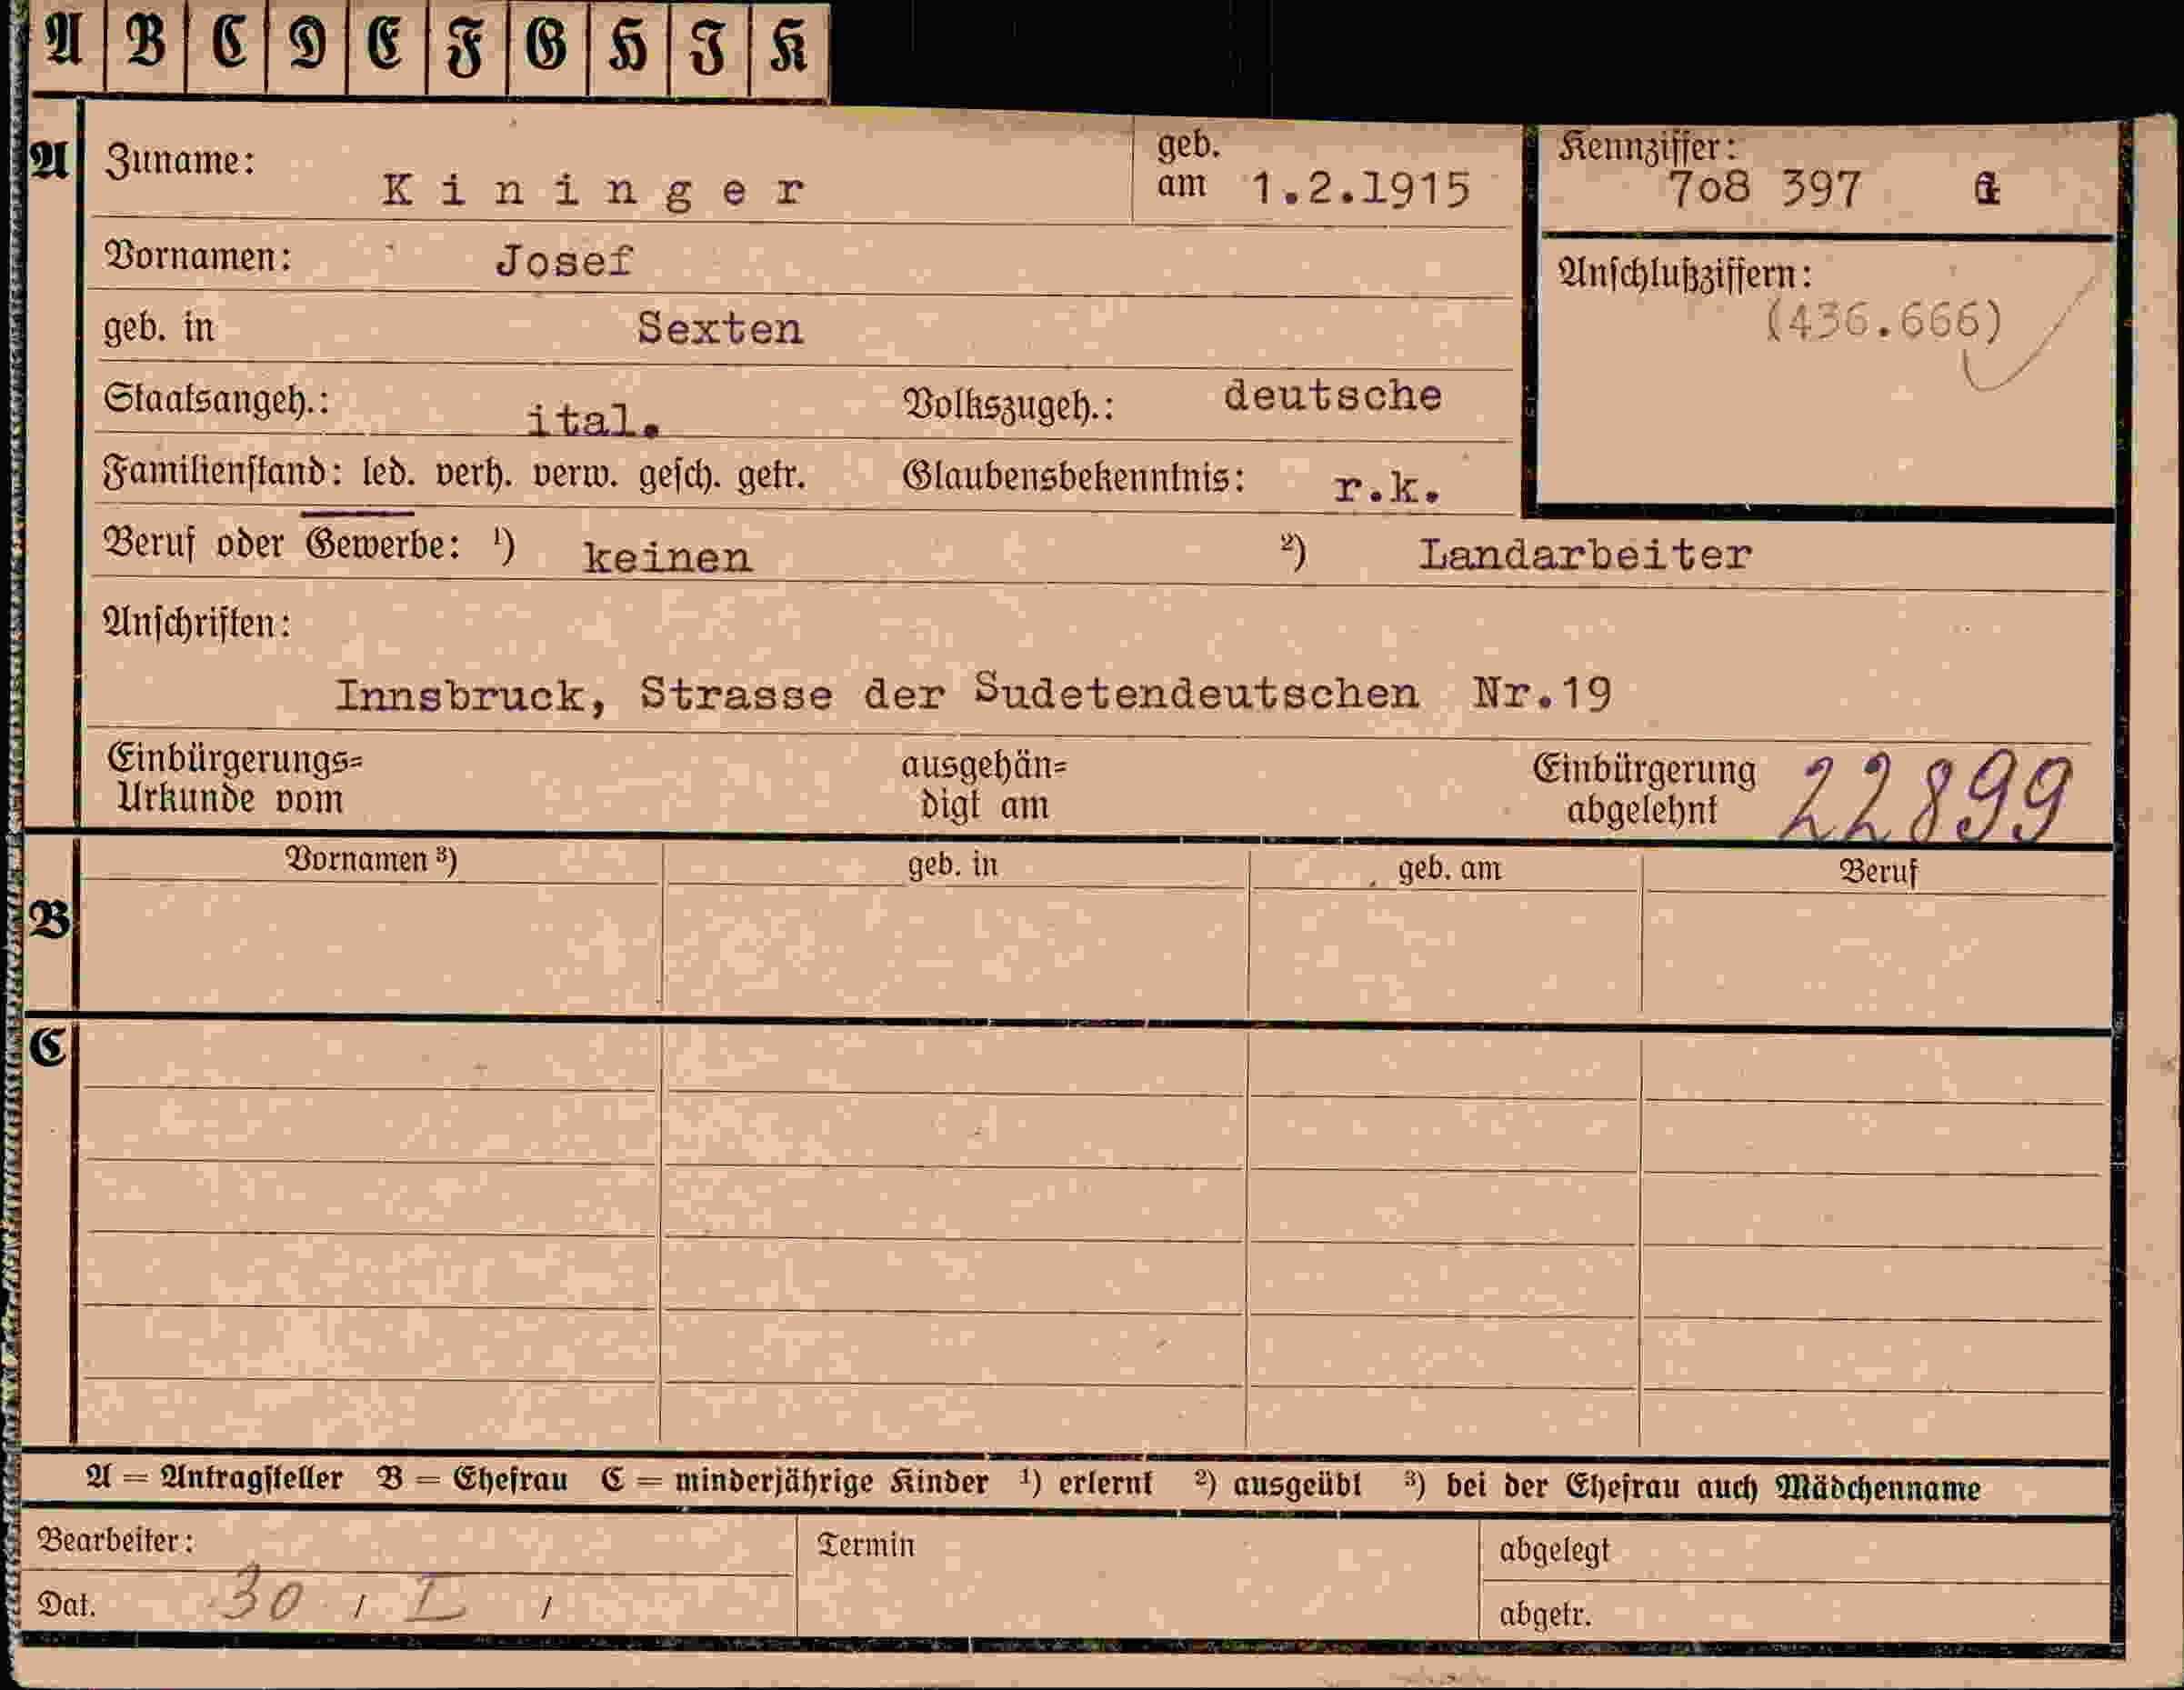 A B C D E F G H J K
A Zuname: Kininger geb. am 1.2.1915 Kennziffer: 7o8 397
Vornamen: Josef
Anschlußziffern: (436.666)
geb. in Sexten
Staatsangeh.: ital. Volkszugeh.: deutsche
Familienstand: led. verh. verw. gesch. getr. Glaubensbekenntnis: r.k.
Beruf oder Gewerbe: ¹) keinen ²) Landarbeiter
Anschriften:
Innsbruck, Strasse der Sudetendeutschen Nr.19
Einbürgerungs= ausgehän= Einbürgerung 22899
Urkunde vom digt am abgelehnt
Vornamen ³) geb. in geb. am Beruf
B
C
A = Antragsteller B = Ehefrau C = minderjährige Kinder ¹) erlernt ²) ausgeübt ³) bei der Ehefrau auch Mädchenname
Bearbeiter: Termin abgelegt
Dat. 30 / I / abgetr.